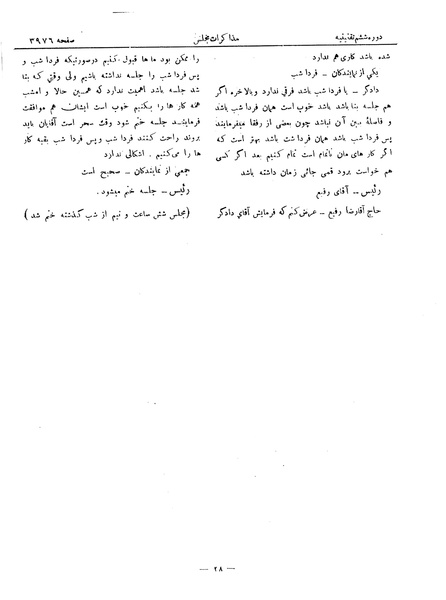 دوره ششم تقنینیه
مذاکرات مجلس
صفحه ۳۹۷۶
شده باشد کاری هم ندارد
یکی از نمایندگان – فردا شب
دادگر – یا فردا شب باشد فرقی ندارد وبالاخره اگر
هم جلسه بنا باشد باشد خوب است همان فردا شب باشد
و فاصلهٔ بین آن نباشد چون بعضی از رفقا میفرمایند
پس فردا شب باشد همان فردا شب باشد بهتر است که
اگر کار های مان ناتمام است تمام کنیم بعد اگر کسی
هم خواست برود قمی جائی زمان داشته باشد
رئیس – آقای رفیع
حاج آقارضا رفیع – عرض کنم که فرمایش آقای دادگر
را ممکن بود ماها قبول کنیم درصورتیکه فردا شب و
پس فردا شب را جلسه نداشته باشیم ولی وقتی که بنا
شد جلسه باشد اهمیت ندارد که همین حالا و امشب
همه کار ها را بکنیم خوب است ایشان هم موافقت
فرمایند جلسه ختم شود وقت سحر است آقایان باید
بروند راحت کنند فردا شب و پس فردا شب بقیه کار
ها را می‌کنیم . اشکالی ندارد
جمعی از نمایندگان – صحیح است
رئیس – جلسه ختم میشود .
(مجلس شش ساعت و نیم از شب گذشته ختم شد)
— ۲۸ —